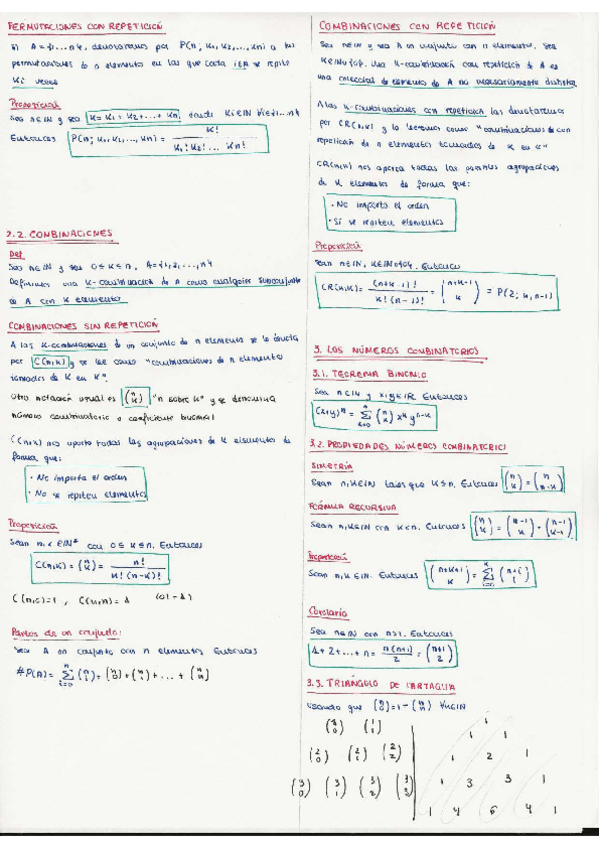 PERMUTACIONES CON REPETICIÓN
Si A = {1,...,n}, denotaremos por P(n; K₁, K₂,..., Kn) a las
permutaciones de n elementos en las que cada i∈A se repite
Ki veces
Proposición
Sea n∈IN y sea K = K₁ + K₂ + ... + Kn donde Ki∈IN ∀i=1...n
Entonces P(n; K₁, K₂,..., Kn) = K! / (K₁! K₂! ... Kn!)
2.2. COMBINACIONES
Def
Sea n∈IN y sea 0 ≤ K ≤ n, A = {1,2,...,n}
Definimos una K-combinación de A como cualquier subconjunto
de A con K elementos
COMBINACIONES SIN REPETICIÓN
A las K-combinaciones de un conjunto de n elementos se le denota
por C(n,K) y se lee como "combinaciones de n elementos
tomados de K en K".
Otra notación usual es (n K) "n sobre K" y se denomina
número combinatorio o coeficiente binomial
C(n,K) nos aporta todas las agrupaciones de K elementos de
forma que:
· No importa el orden
· No se repiten elementos
Proposición
Sean n, K∈IN* con 0 ≤ K ≤ n. Entonces
C(n,K) = (n K) = n! / (K! (n-K)!)
C(n,0)=1 , C(n,n)=1 (0!=1)
Partes de un conjunto:
Sea A un conjunto con n elementos. Entonces
#P(A) = Σ i=0 n (n i) = (n 0) + (n 1) + ... + (n n)
COMBINACIONES CON REPETICIÓN
Sea n∈IN y sea A un conjunto con n elementos. Sea
K∈IN∪{0}. Una K-combinación con repetición de A es
una colección de elementos de A no necesariamente distintos
A las K-combinaciones con repetición las denotaremos
por CR(n,K) y lo leeremos como "combinaciones con
repetición de n elementos tomados de K en K"
CR(n,K) nos aporta todas las posibles agrupaciones
de K elementos de forma que:
· No importa el orden
· Si se repiten elementos
Proposición
Sean n∈IN, K∈IN∪{0}. Entonces
CR(n,K) = (n+K-1)! / (K! (n-1)!) = (n+K-1 K) = P(2; K, n-1)
3. LOS NÚMEROS COMBINATORIOS
3.1. TEOREMA BINOMIO
Sea n∈IN y x,y∈IR. Entonces
(x+y)ⁿ = Σ k=0 n (n k) xᵏ yⁿ⁻ᵏ
3.2. PROPIEDADES NÚMEROS COMBINATORIOS
SIMETRÍA
Sean n,K∈IN tales que K ≤ n. Entonces (n K) = (n n-K)
FÓRMULA RECURSIVA
Sean n,K∈IN con K < n. Entonces (n K) = (n-1 K) + (n-1 K-1)
Proposición
Sean n, K∈IN. Entonces (n+K+1 K) = Σ i=0 K (n+i i)
Corolario
Sea n∈IN con n≥1. Entonces
1+2+...+n = n(n+1)/2 = (n+1 2)
3.3. TRIÁNGULO DE TARTAGLIA
Usando que (n 0) = 1 = (n n) ∀n∈IN
(1 0) (1 1) 1 1
(2 0) (2 1) (2 2) 1 2 1
(3 0) (3 1) (3 2) (3 3) 1 3 3 1
1 4 6 4 1